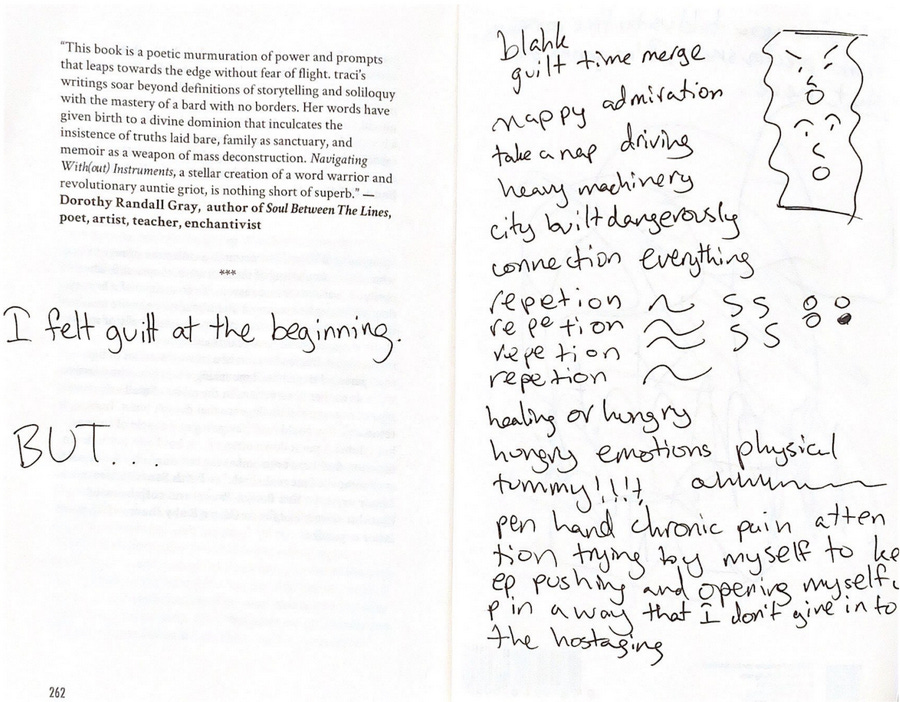 “This book is a poetic murmuration of power and prompts
that leaps towards the edge without fear of flight. traci’s
writings soar beyond definitions of storytelling and soliloquy
with the mastery of a bard with no borders. Her words have
given birth to a divine dominion that inculcates the
insistence of truths laid bare, family as sanctuary, and
memoir as a weapon of mass deconstruction. Navigating
With(out) Instruments, a stellar creation of a word warrior and
revolutionary auntie griot, is nothing short of superb.” —
Dorothy Randall Gray, author of Soul Between The Lines,
poet, artist, teacher, enchantivist
***
I felt guilt at the beginning.
BUT...
262
blank
guilt time merge
nappy admiration
take a nap driving
heavy machinery
city built dangerously
connection everything
repetion ss
repetion ss
repetion
repetion
healing or hungry
hungry emotions physical
tummy!!!! ahhhh
pen hand chronic pain atten
tion trying by myself to ke
ep pushing and opening myself u
p in a way that I don't give in to
the hostaging